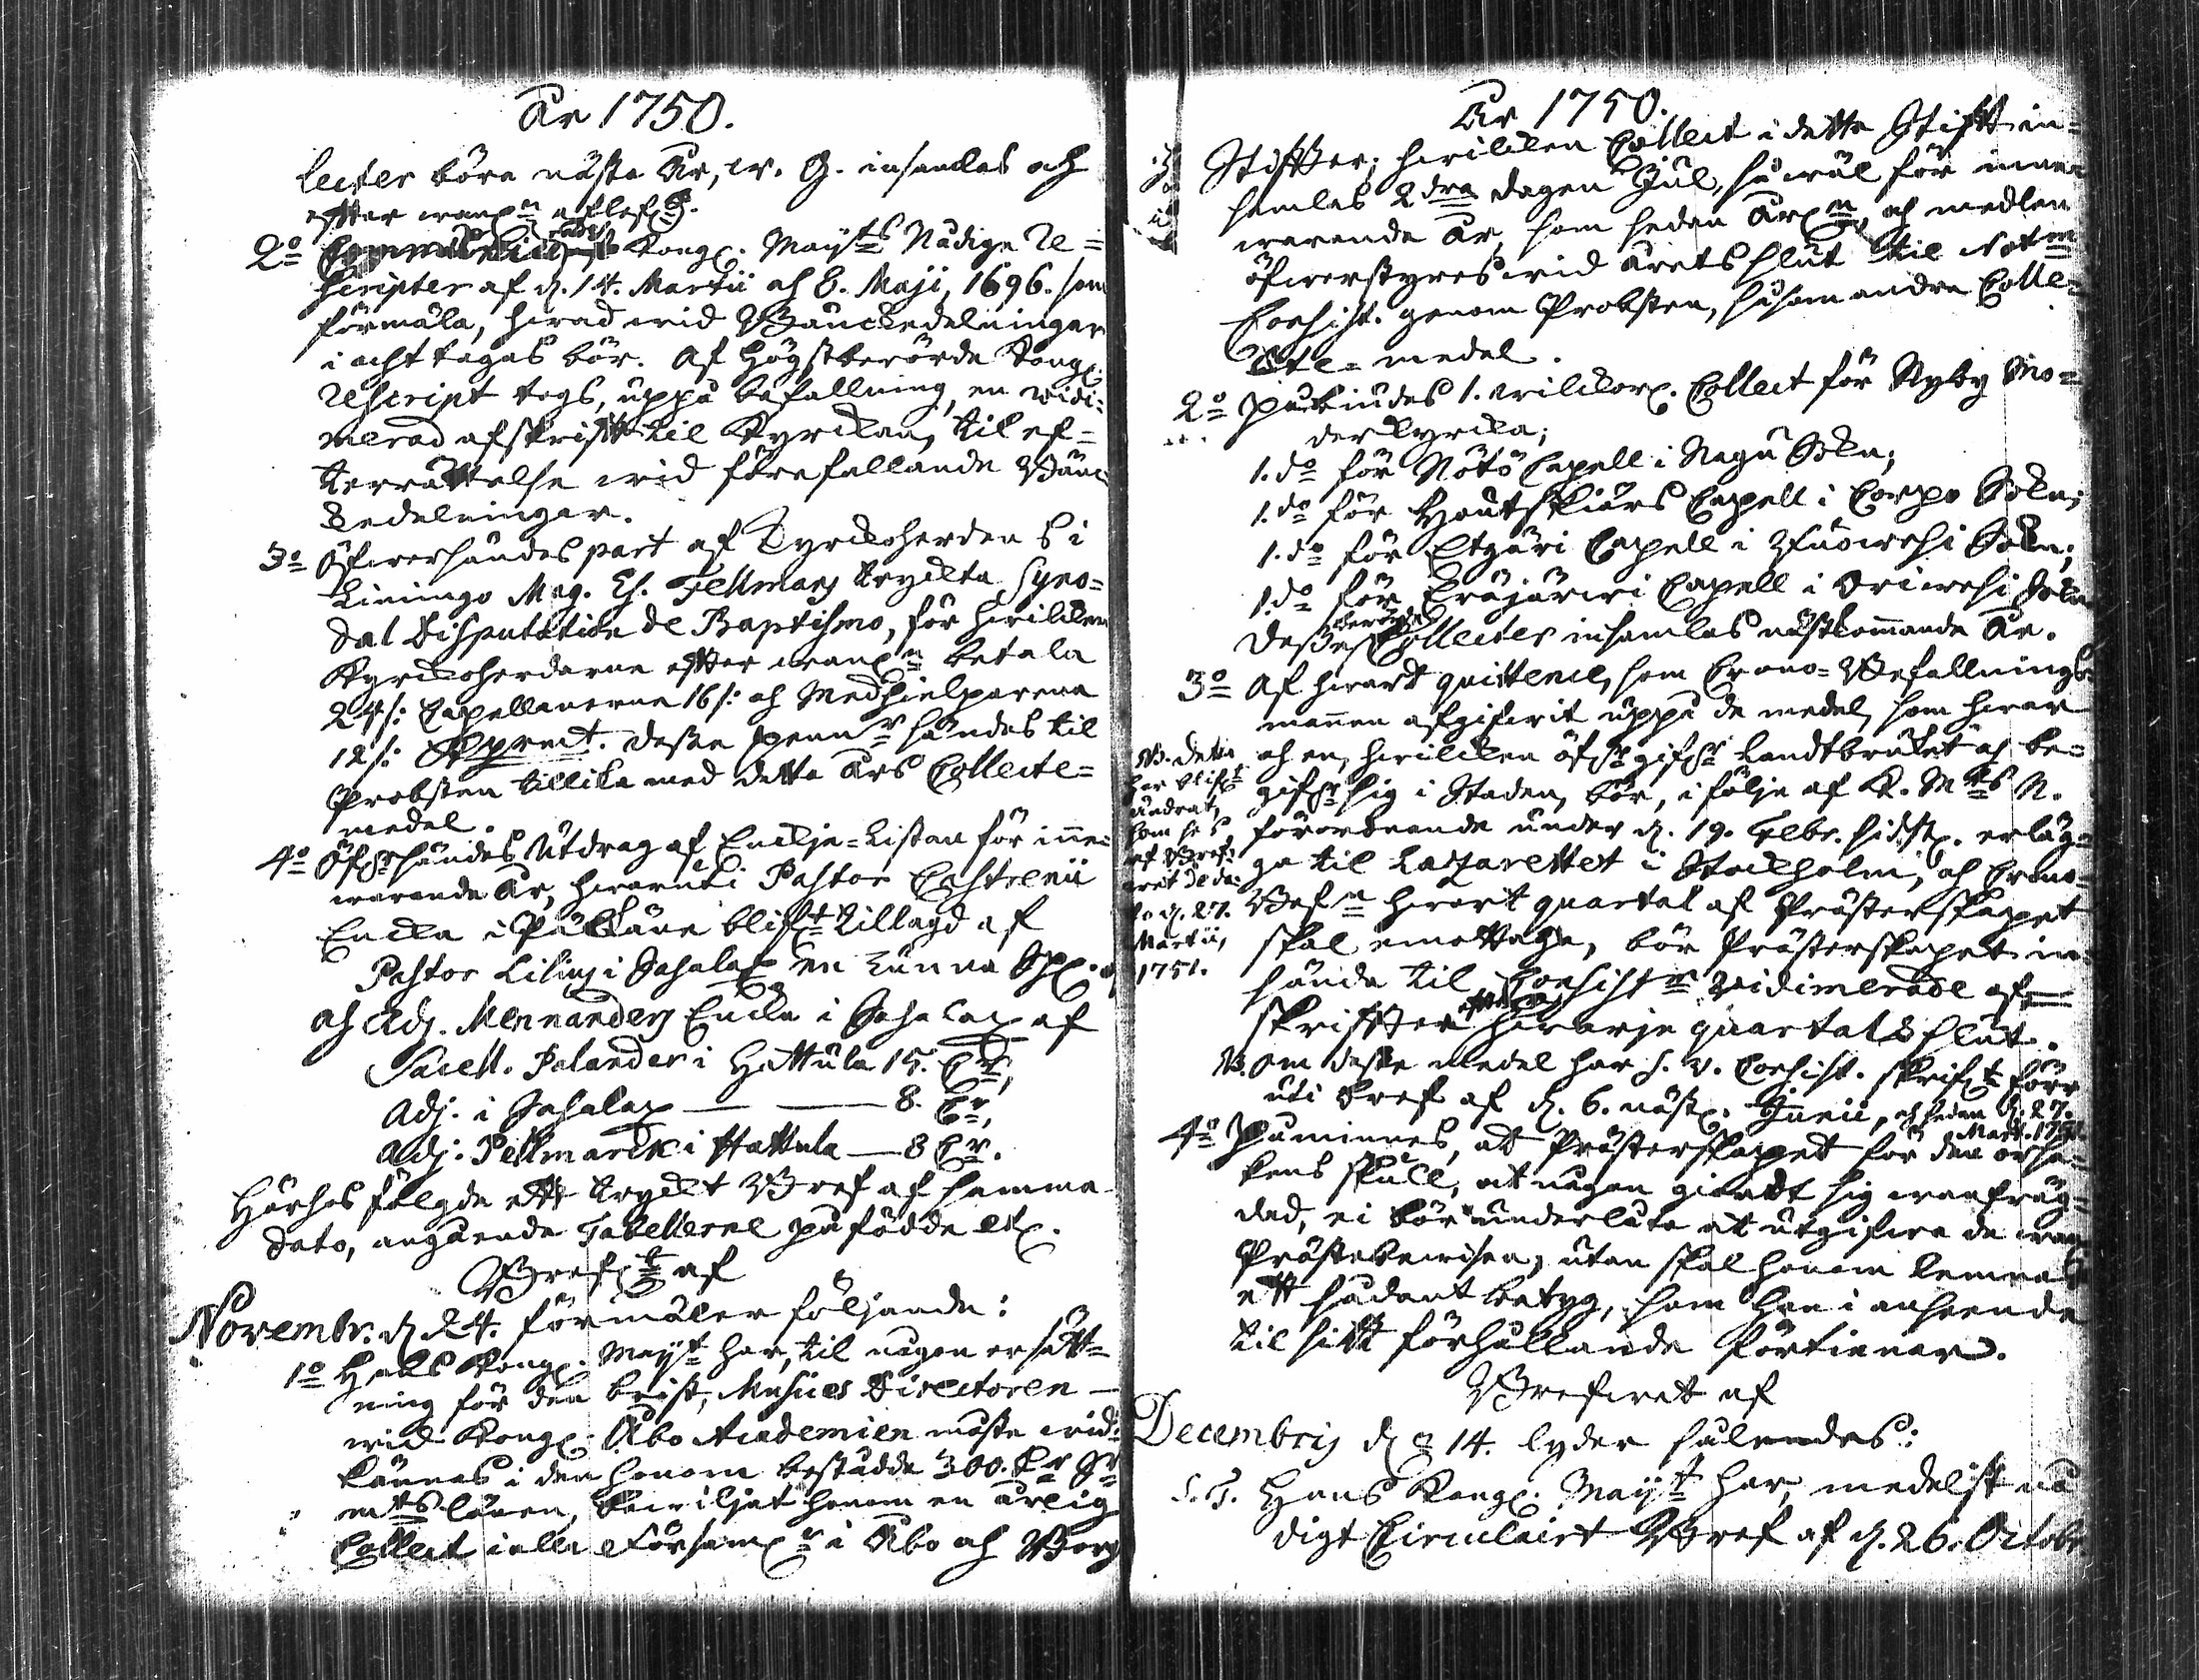 År 1750.
lecter böra nästa År, w. G. insamlas och
efter wanl:n aflefw:s.
2:o Communicerades Kongl. Maij:ts Nådige Re=
scripter af d. 14. Martii och 8. Maji, 1696. som
förmäla, hwad wid Bänckedelningar
i acht tagas bör. Af Högstberörde Kongl.
Rescript togs, uppå befallning, en widi=
merad afskrift til Kyrckan, til ef=
terrättelse wid förefallande Bänc
kedelningar.
3:o Öfwersändes part af Kyrckoherdens i
Limingo Mag. Es. Fellmans tryckta Syno=
dal Disputation de Baptismo, för hwilcken
Kyrckoherdarne efter wanl:n betala
24 s: Capellanerne 16 s: och Medhjelparena
12 s: K:pr:mt. Desse penn:r sändes til
Probsten tillika med detta Års Collecte=
medel.
4:o Öfw:r sändes Utdrag af Enckje=Listan för inne=
warande År, hwaruti Pastor Castrenii
Encka i Påldäne blifw:t tillagd af
Pastor Lilius i Sahalax en tunna Sp:l.
och Adj. Mennanders Encka i Sahalax af
Sacell. Polander i Hattula 15. C:r,
Adj. i Sahalax — — 8. C:r,
Adj. Pellmarck i Hattula — 8 C:r.
Härhos fölgde ett tryckt Bref af samma
dato, angående Tabellerne på födde etc.
Brefw:t af
Novembr. d. 24. förmäler följande:
1:o Hans Kongl. Maij:t har, til någon ersätt=
ning för den brist, Musices Directoren
wid Kongl. Åbo Academien måste wid=
kännas i den honom bestådde 300. D:r S:r
m:ts lönen, bewiljat honom en årlig
Collect i alla Församl:r i Åbo och Borgå
År 1750.
Stifter; hwilcken Collect i detta Stift in=
samlas 2dra dagen Jul, så wäl för inne=
warande År, som sedan årl:n, och medlen
öfwerstyres wid årets slut til Vot:m
Consist. genom Probsten, såsom andra Colle=
cte=medel.
2:o Påbiudes 1. wilckorl. Collect för Nyby Mo=
derkyrcka;
1. d:o för Nötö Capell i Nagu Sokn;
1. d:o för Houtskiärs Capell i Corpo Sokn;
1. d:o för Etzäri Capell i Ruowesi Sokn;
1. d:o för Eräjärwi Capell i Oriwesi Sokn
Desse berörde Collecter insamlas nästkommande År.
3:o Af hwart quittence, som Crono=Befallnings
mannen afgifwit uppå de medel, som hwar
och en, hwilcken öfw:r gifw:r Landtbruket och be=
gifw:r sig i Staden, bör, i följe af K. M:ts N.
förordnande under d. 19. Febr. sidstl. erläg=
ga til Lazarettet i Stockholm, och Crono=
Bef:n hwart quartal af Prästerskapet
skal emottaga, bör Prästerskapet in=
sända til Consist:m vidimerade af=
skrifter efter hwarje quartals slut.
NB. Detta
har blifw:t
ändrat,
som ses
af Bref=
wet de da=
to d. 27.
Martii,
1751.
NB. Om deste medel har S. V. Consist. skrifw:t förr
uti bref af d. 6. näst. Junii, och sedan d. 27.
Mart. 1751
4:o Påminnes, at Prästerskapet för den orsa=
kens skull, at någon giordt sig wanfräg=
dad, ei bör underlåta at utgifwa de wanl.
Prästebewisen; utan skal honom lemnas
ett sådant betyg, som han i anseende
til sitt förhållande förtienar.
Brefwet af
Decembris d. 14. lyder sålendes:
S. T. Hans Kongl. Maij:t har, medelst nå
digt Circulairt Bref af d. 26. Octobr.